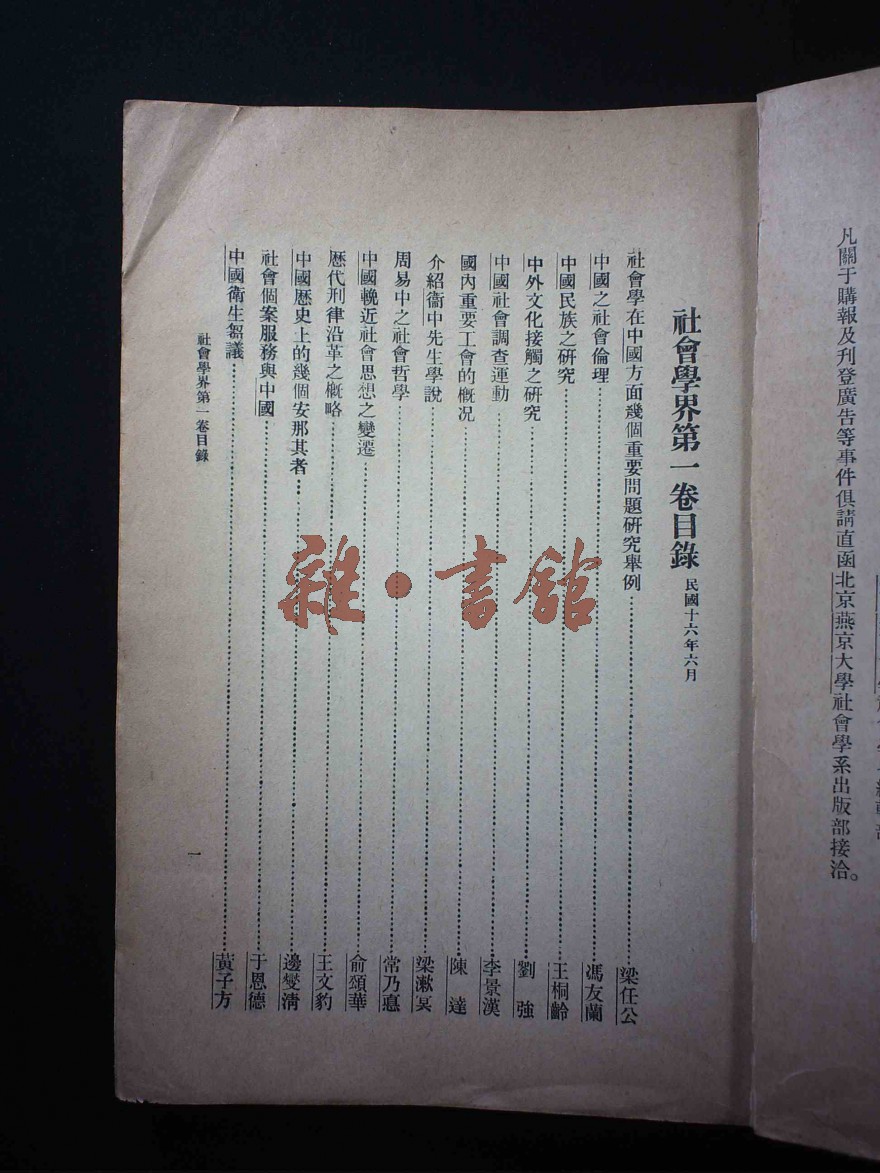 凡關于購報及刋登廣告等事件俱請直函北京燕京大學社會學系出版部接洽。
社會學界第一卷目錄 民國十六年六月
社會學在中國方面幾個重要問題硏究舉例 梁任公
中國之社會倫理 馮友蘭
中國民族之硏究 王桐齡
中外文化接觸之硏究 劉強
中國社會調查運動 李景漢
國內重要工會的槪况 陳達
介紹衞中先生學說 梁漱冥
周易中之社會哲學 常乃悳
中國輓近社會思想之變遷 俞頌華
歷代刑律沿革之槪略 王文豹
中國歷史上的幾個安那其者 邊燮淸
社會個案服務與中國 于恩德
中國衞生芻議 黃子方
社會學界第一卷目錄
一
雜·書館